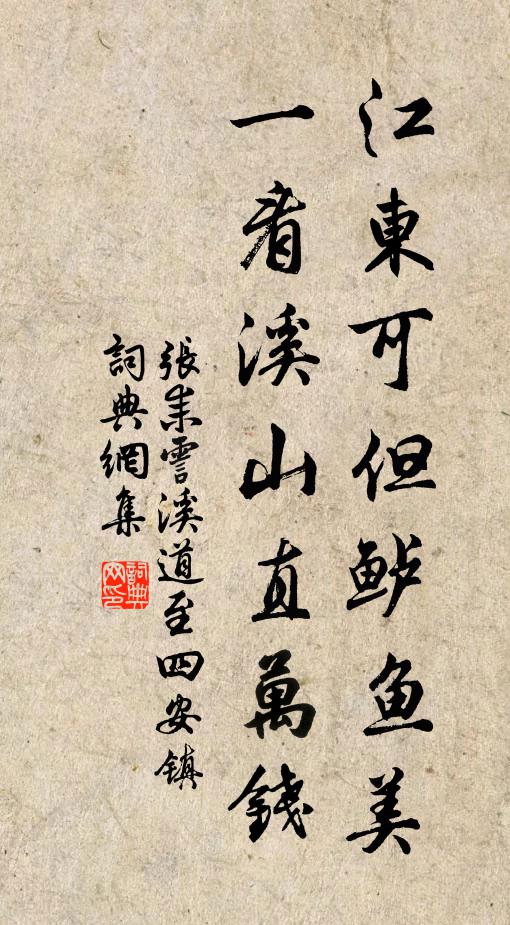 江東可但鲈鱼美
一看溪山直萬錢
張耒霅溪道至四安镇
詞典網集
詞典网印